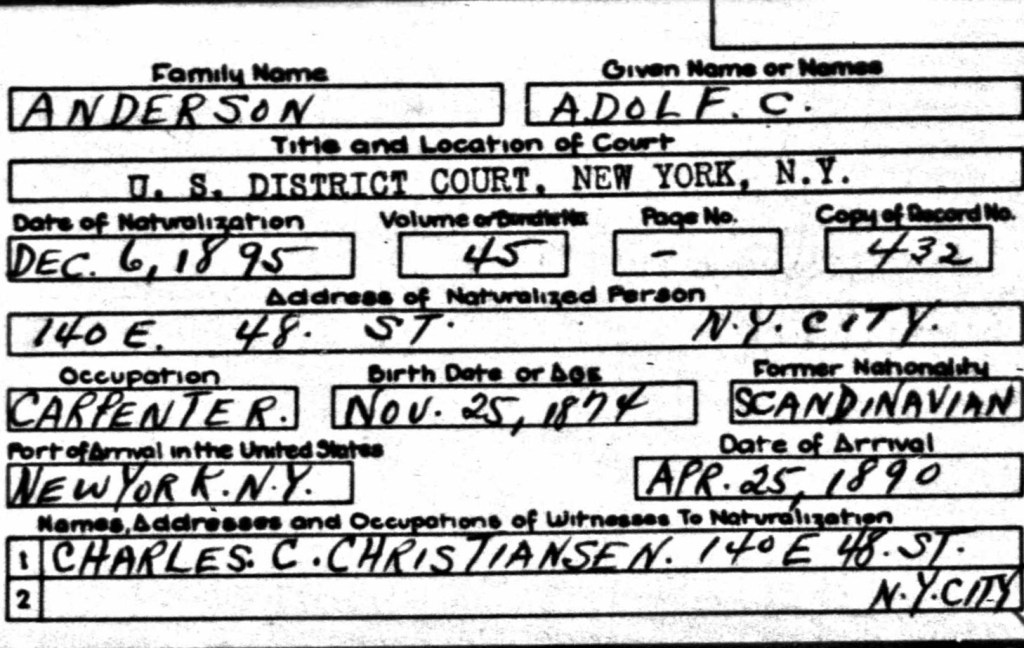 Family Name Given Name or Names
ANDERSON ADOLF. C.
Title and Location of Court
U. S. DISTRICT COURT, NEW YORK, N.Y.
Date of Naturalization Volume or Bundle No. Page No. Copy of Record No.
DEC. 6, 1895 45 - 432
Address of Naturalized Person
140 E. 48. ST. N.Y. CITY.
Occupation Birth Date or Age Former Nationality
CARPENTER. NOV. 25, 1874 SCANDINAVIAN
Port of Arrival in the United States Date of Arrival
NEW YORK. N.Y. APR. 25, 1890
Names, Addresses and Occupations of Witnesses To Naturalization
1 CHARLES. C. CHRISTIANSEN. 140 E 48. ST.
2 N.Y. CITY